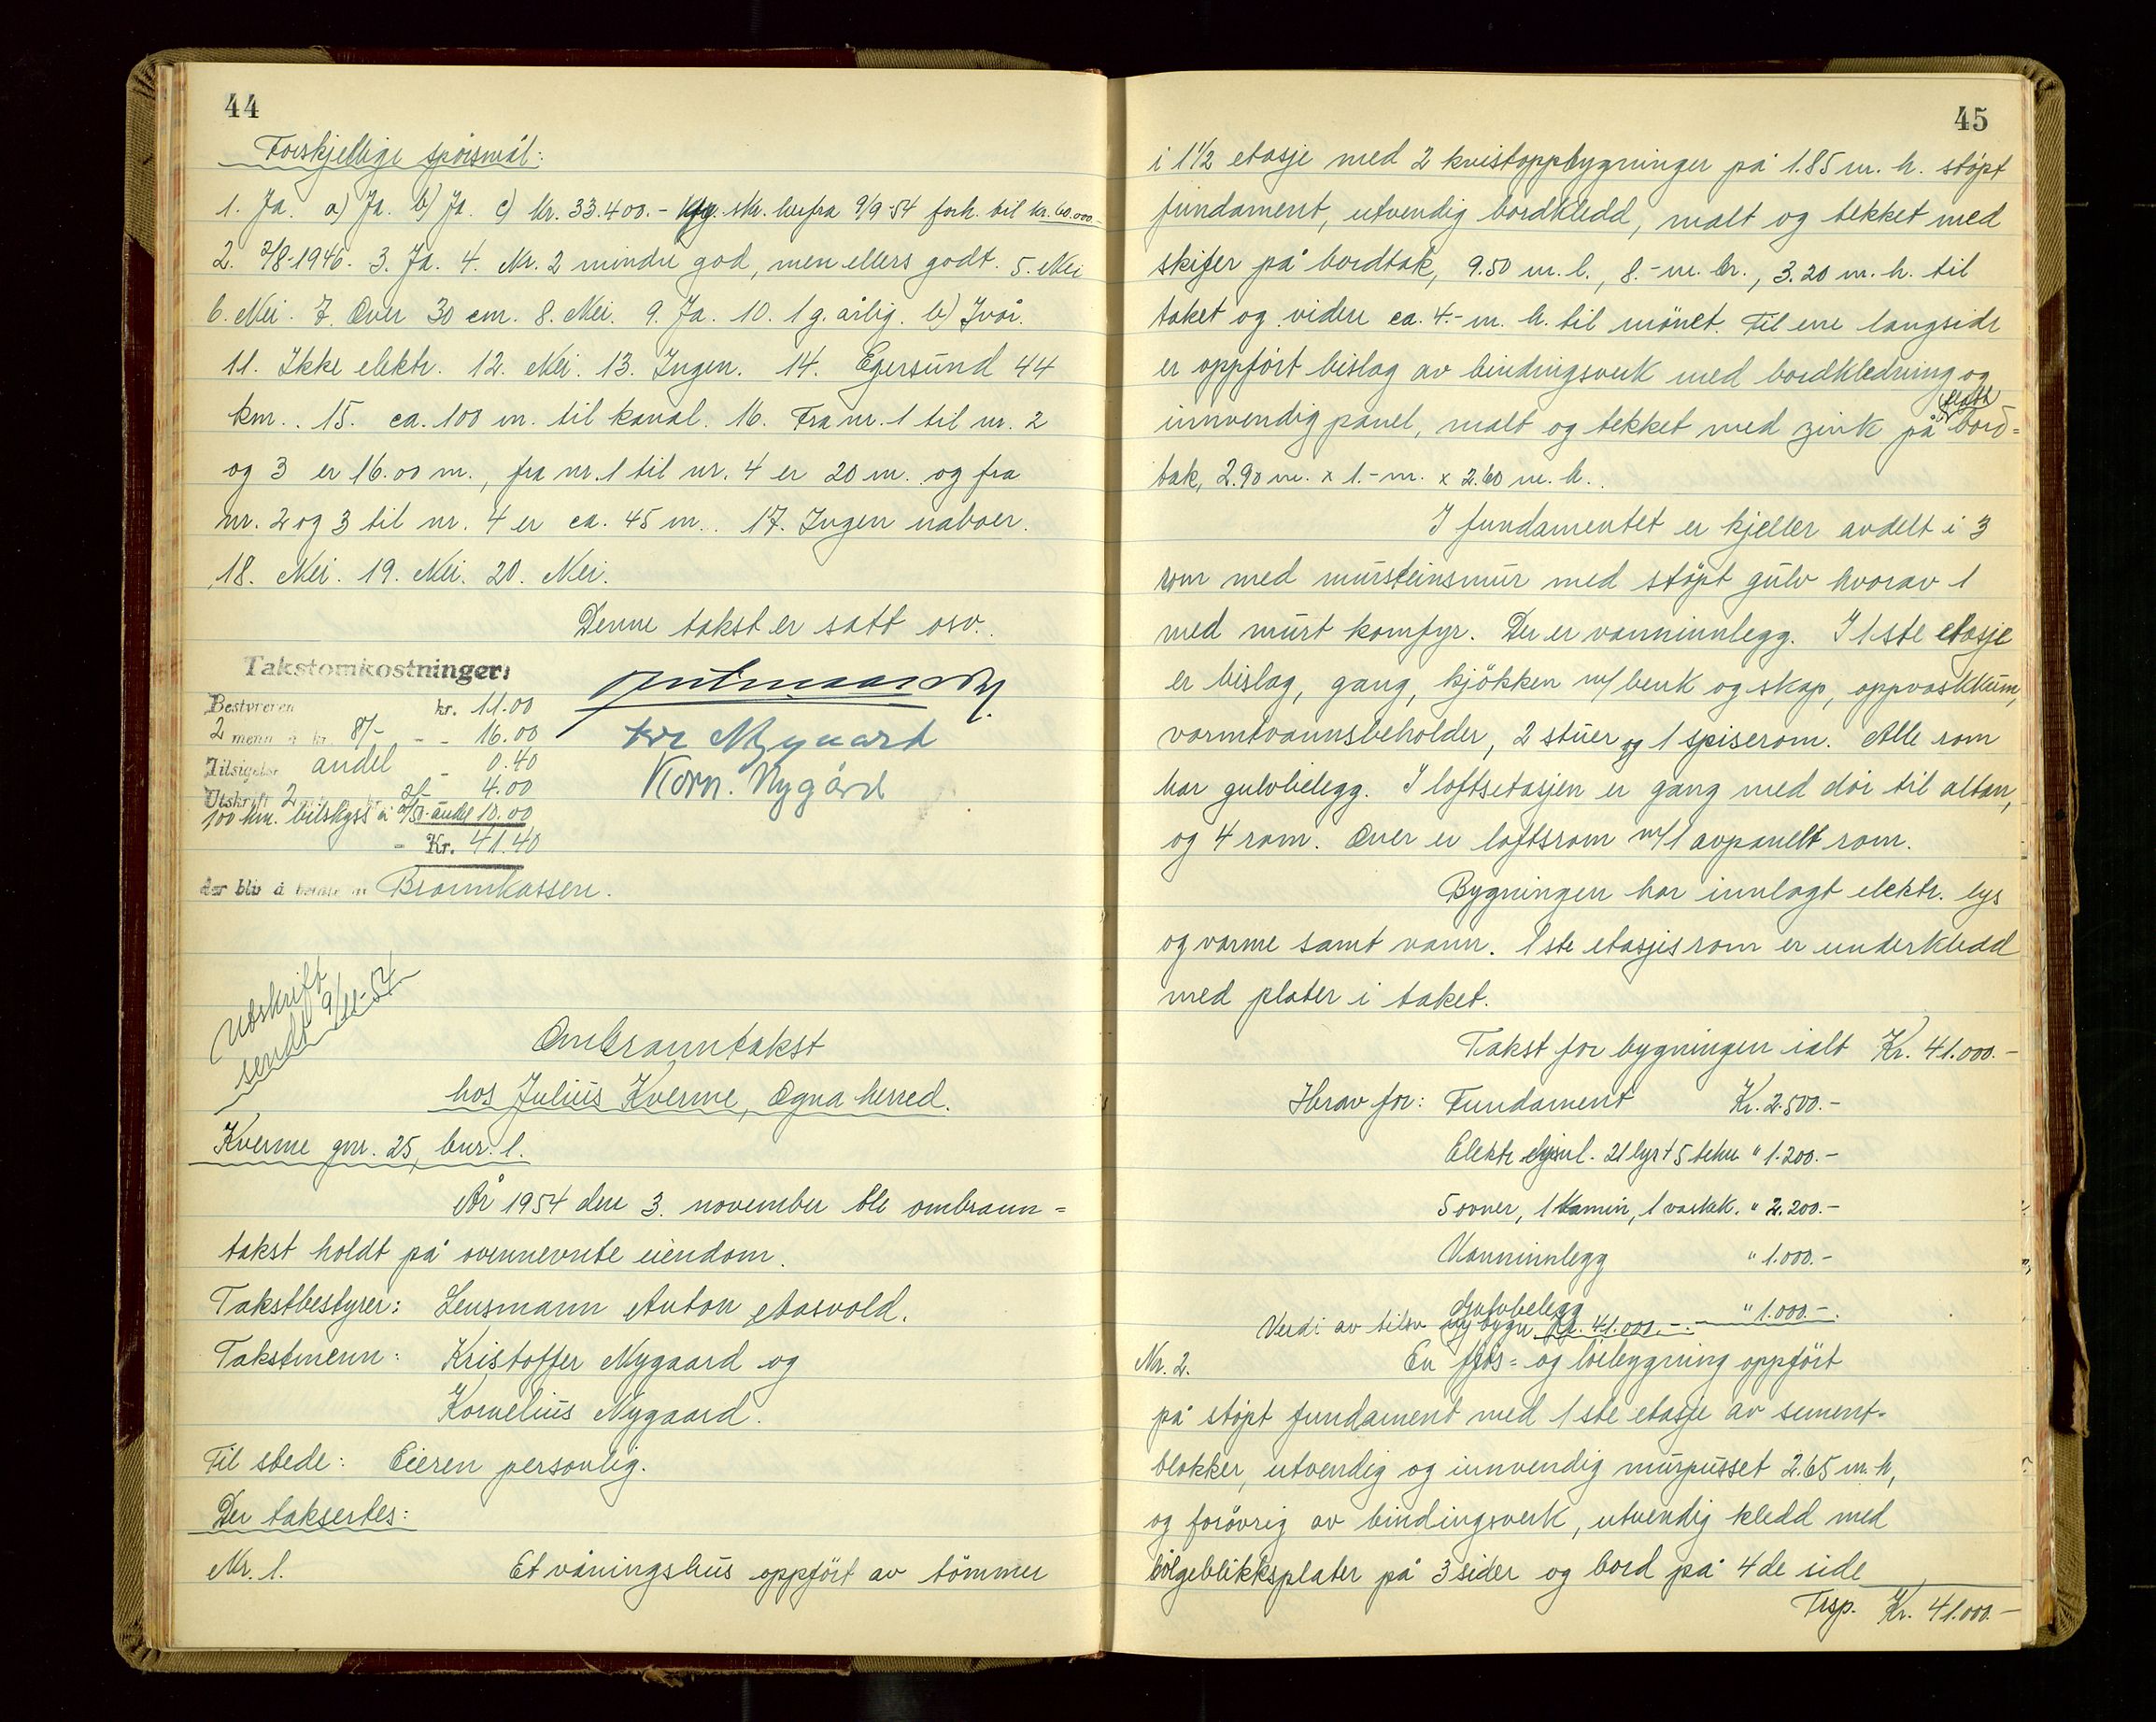 44
Forskjellige spörsmål:
1. Ja. a) Ja. b) Ja. c) kr. 33.400.- skr. herfra 9/9-54 forh. til kr. 60.000-
2. 2/8-1946. 3. Ja. 4. Nr. 2 mindre god, men ellers godt. 5. Nei
6. Nei. 7. Over 30 cm. 8. Nei. 9. Ja. 10. 1 g. årlig. b) Ivår.
11. Ikke elektr. 12. Nei. 13. Ingen. 14. Egersund 44
km.. 15. ca. 100 m. til kanal. 16. Fra nr. 1 til nr. 2
og 3 er 16.00 m., fra nr. 1 til nr. 4 er 20 m. og fra
nr. 2 og 3 til nr. 4 er ca. 45 m.. 17. Ingen naboer.
18. Nei. 19. Nei. 20. Nei.
Denne takst er satt osv..
Takstomkostninger:
Bestyreren kr. 11.00
2 menn à kr. 8/- - - 16.00
Tilsigelse andel - 0.40
Utskrift 2 2/- 4.00
100 km. bilskyss à 2/50 andel 10.00
- Kr. 41.40
der blir å betale av Brannkassen.
Kr. Nygaard
Korn. Nygård
Utskrift
sendt 9/11-54
Ombranntakst
hos Julius Kverme, Ogna herred.
Kverme gnr. 25, bnr. 1.
År 1954 den 3. november ble ombrann=
takst holdt på ovennevnte eiendom.
Takstbestyrer: Lensmann Anton Aasvold.
Takstmenn: Kristoffer Nygaard og
Kornelius Nygaard.
Til stede: Eieren personlig.
Der taksertes:
Nr. 1. Et våningshus oppfört av tömmer
45
i 1 1/2 etasje med 2 kvistoppbygninger på 1.85 m. h. støpt
fundament, utvendig bordkledd, malt og tekket med
skifer på bordtak, 9.50 m. l., 8.- m. br., 3.20 m. h. til
taket og videre ca. 4.- m. h. til mönet. Til ene langside
er oppfört bislag av bindingsverk med bordkledning og
innvendig panel, malt og tekket med zink på flatt bord=
tak, 2.90 m. x 1.- m. x 2.60 m. h..
I fundamentet er kjeller avdelt i 3
rom med mursteinsmur med støpt gulv hvorav 1
med murt komfyr. Der er vanninnlegg. I 1ste etasje
er bislag, gang, kjökken m/ benk og skap, oppvaskkum,
varmtvannsbeholder, 2 stuer og 1 spiserom. Alle rom
har gulvbelegg. I loftsetasjen er gang med dör til altan,
og 4 rom. Over er loftsrom m/1 avpanelt rom.
Bygningen har innlagt elektr. lys
og varme samt vann. 1ste etasjes rom er underkledd
med plater i taket.
Takst for bygningen ialt Kr. 41.000.-
Herav for: Fundament Kr. 2.500.-
Elektr. 21 lys + 5 tekn. " 1.200.-
5 ovner, 1 kamin, 1 vaskek. " 2.200.-
Vanninnlegg " 1.000.-
Gulvbelegg " 1.000.-
Verdi av tilsv. ny bygn. kr. 41.000.-.
Nr. 2. En fjös= og löebygning oppfört
på støpt fundament med 1ste etasje av sement-
blokker, utvendig og innvendig murpusset 2.65 m. h,
og foröverig av bindingsverk, utvendig kledd med
bölgeblikksplater på 3 sider og bord på 4de side
Trsp. Kr. 41.000.-